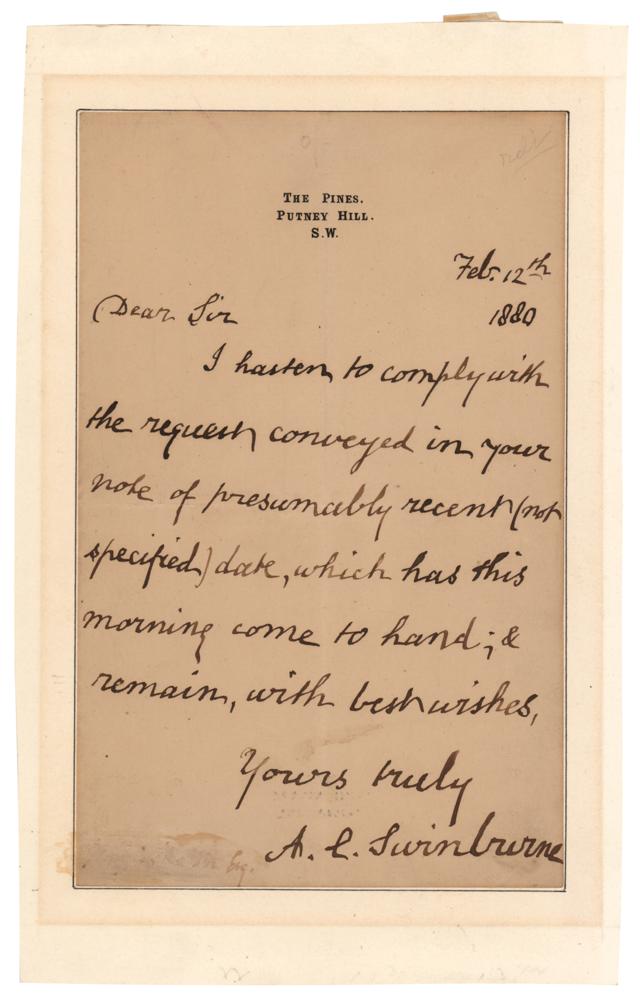 THE PINES.
PUTNEY HILL.
S.W.
Feb. 12th
1880
Dear Sir
I hasten to comply with
the request conveyed in your
note of presumably recent (not
specified) date, which has this
morning come to hand; &
remain, with best wishes,
Yours truly
A. C. Swinburne
Esq.